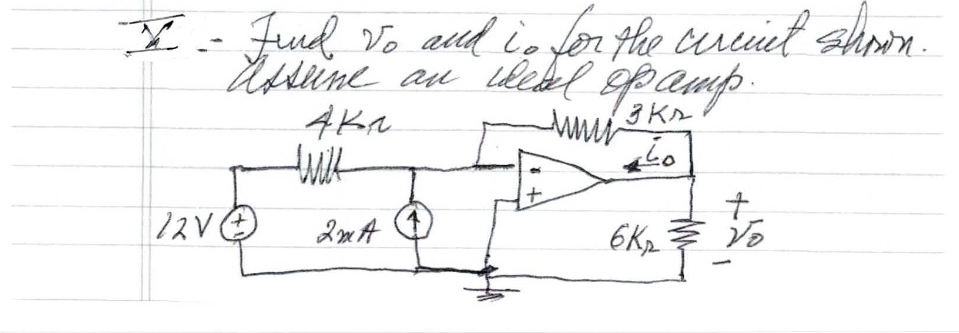 V - Find vo and io for the circuit shown.
Assume an ideal op amp.
4KΩ
3KΩ
io
-
+
12V
+
-
2mA
6KΩ
+
vo
-